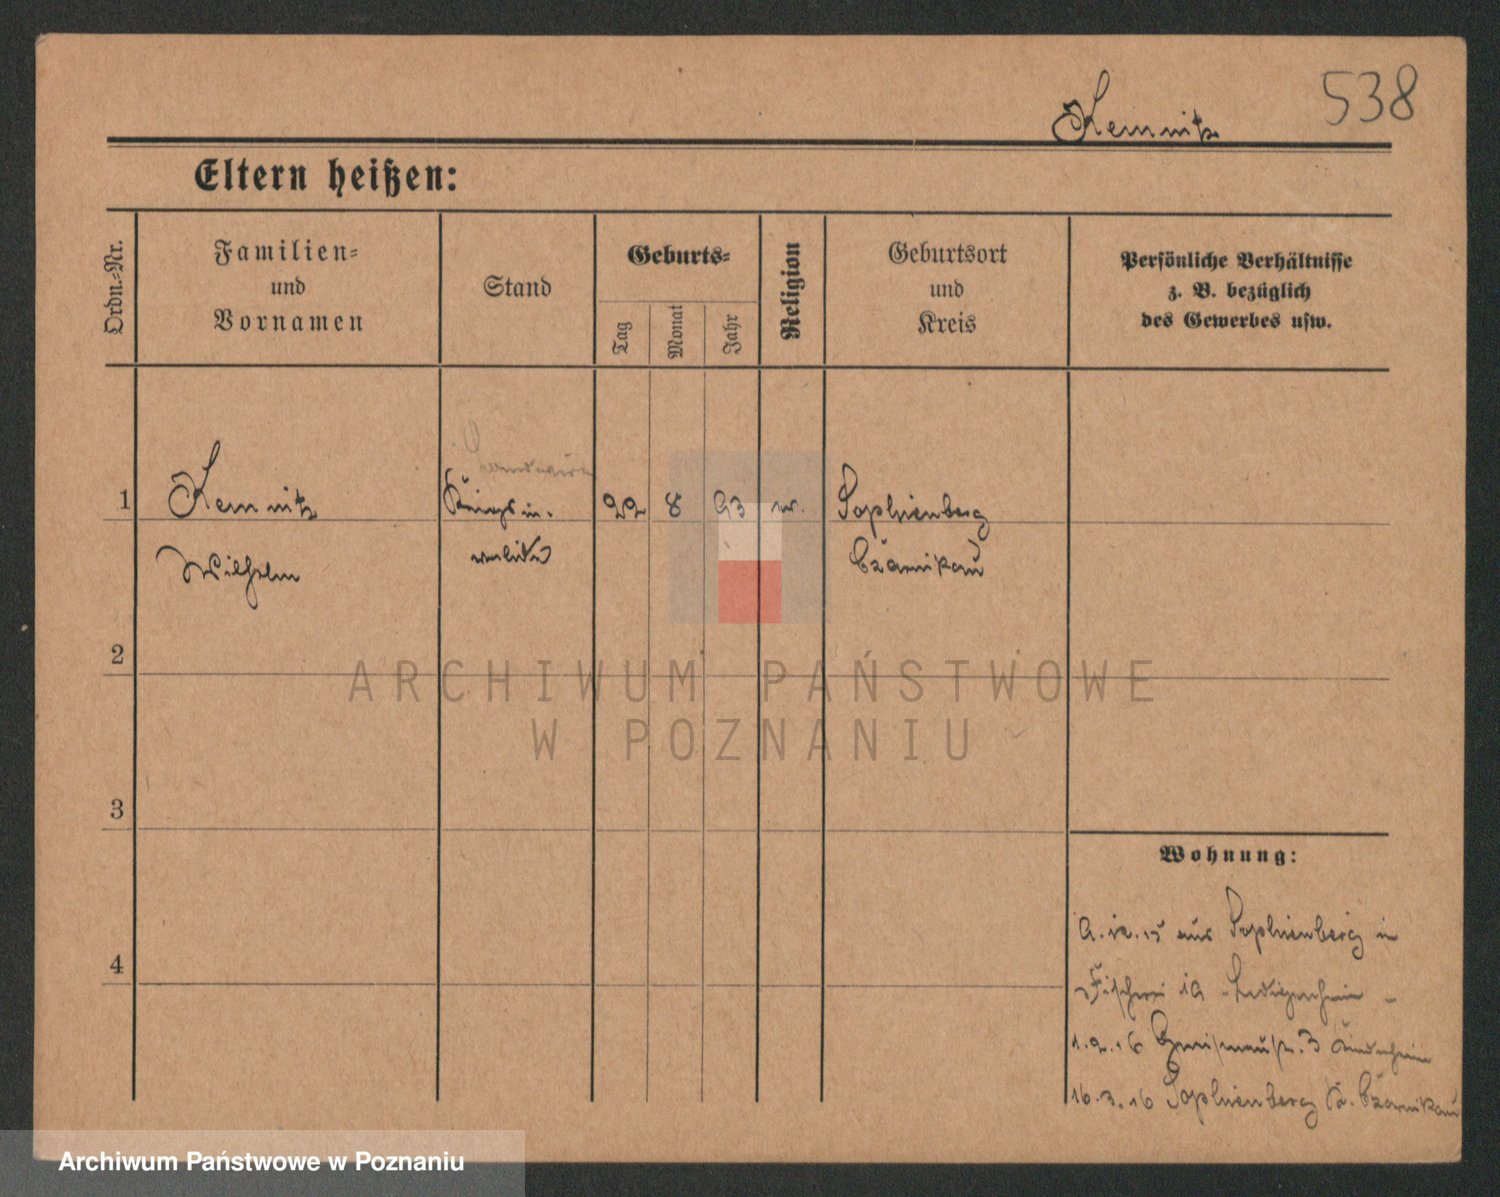 538
Kemnitz
Eltern heißen:
Ordn.-Nr.
Familien- und Vornamen
Stand
Geburts-
Tag
Monat
Jahr
Religion
Geburtsort und Kreis
Persönliche Verhältnisse z. B. bezüglich des Gewerbes usw.
Landwirt
1 Kemnitz Kriegsin- 22 8 93 ev. Sophienberg
Wilhelm valide Czarnikau
2
ARCHIWUM PAŃSTWOWE
W POZNANIU
3
Wohnung:
12.15 aus Sophienberg in
4
Fischerei 19 Ledigenheim
1.2.16 3
16.3.16 Sophienberg Kr. Czarnikau
Archiwum Państwowe w Poznaniu